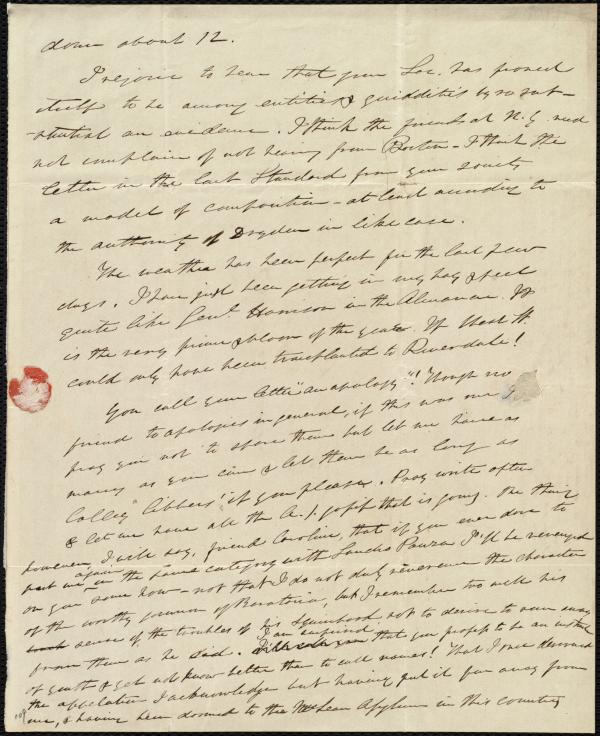 down about 12.
I rejoice to hear that your Soc. has proved
itself to be among entities & quiddities by so sub-
-stantial an evidence. I think the friends at N.Y. need
not complain of not hearing from Boston - I think the
letter in the last Standard from your society
a model of composition - at least according to
the authority of Dryden in like case.
The weather has been perfect for the last few
days. I have just been getting in my hay & feel
quite like Genl. Harrison in the Almanac. It
is the very prime & bloom of the year. If West H.
could only have been transplanted to Riverdale!
You call your letter "an apology"! Though no
friend to apologies in general, if this was one I
pray you not to spare them but let me have as
many as you can & let them be as long as
"Colley Cibbers" if you please. Pray write often
& let me have all the A.S. gossip that is going. One thing
however, I will say, friend Caroline, that if you ever dare to
put me again in the same category with Sancho Panza I'll be revenged
on you some how - not that I do not duly reverence the character
of the worthy governor of Barataria, but I remember too well his
sense of the troubles of his squirehood, not to desire to run away
from them as he did. I am surprised that you profess to be an instructor
of youth & yet not know better than to call names! That I once deserved
the appellation I acknowledge but having put it far away from
me, & having been doomed to the McLean Asylum in this country